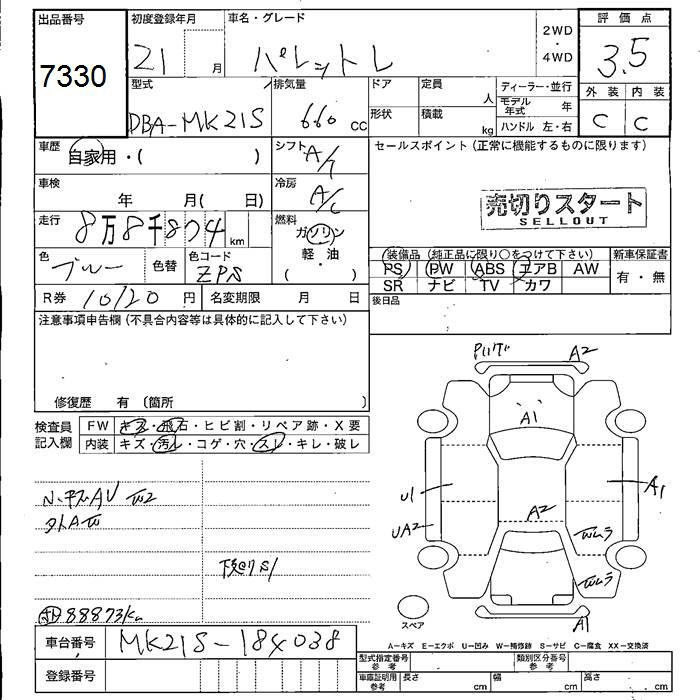 出品番号 初度登録年月 車名・グレード 2WD・4WD 評価点
7330 21 月 パレット L 3.5
型式 排気量 ドア 定員 人 ディーラー・並行 外装 内装
DBA-MK21S 660 cc 形状 積載 kg モデル年式 年 C C
ハンドル 左・右
車歴 自家用・( ) シフト A/T セールスポイント (正常に機能するものに限ります)
車検 年 月( 日) 冷房 A/C
売切りスタート
SELLOUT
走行 8万8千804 km 燃料 ガソリン・軽・油 ( )
色 ブルー 色替 色コード ZPS
装備品 (純正品に限り○をつけて下さい) 新車保証書
PS PW ABS エアB AW 有・無
SR ナビ TV カワ
R券 10120 円 名変期限 月 日 後日品
注意事項申告欄 (不具合内容等は具体的に記入して下さい)
修復歴 有 (箇所 )
検査員記入欄 FW キズ・飛石・ヒビ割・リペア跡・X要
内装 キズ・汚レ・コゲ・穴・スレ・キレ・破レ
A2
A1
U1 A1
A2
UA2 Wムラ
Wムラ
A1
下廻りS1
88873km
スペア
車台番号 MK21S-184038
登録番号
A-キズ E-エクボ U-凹み W-補修跡 S-サビ C-腐食 XX-交換済
型式指定番号 参考 類別区分番号 参考
車庫証明用 参考 長さ cm 幅 cm 高さ cm